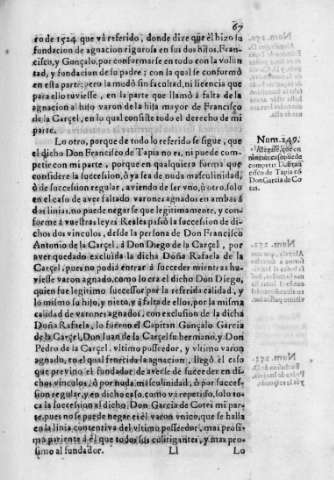 67
ro de 1524. que và referido, donde dize que él hizo su
fundacion de agnacion rigorosa en sus dos hijos, Fran-
cisco, y Gonçalo, por conformarse en todo con la volun-
tad, y fundacion de su padre; con la qual se conformò
en esta parte; pero la mudò sin facultad, ni licencia que
para ello tuviesse, en la parte que llamò à falta de la
agnacion al hijo varon de la hija mayor de Francisco
de la Carçel, en lo qual consiste todo el derecho de mi
parte.
Lo otro, porque de todo lo referido se sigue, que
el dicho Don Francisco de Tapia no es, ni puede com-
petir con mi parte, porque en qualquiera forma que
considere la succession, ò ya sea de nuda masculinidad,
ò de succession regular, aviendo de ser vno, ù otro, solo
en el caso de aver faltado varones agnados en ambas à
dos lineas, no puede negarse que legitimamente, y con-
forme à vuestras leyes Reales passò la succession de di-
chos dos vinculos, desde la persona de Don Francisco
Antonio de la Carçel, à Don Diego de la Carçel, por
aver quedado excluida la dicha Doña Rafaela de la
Carçel, pues no podia entrar à suceder mientras hu-
viesse varon agnado, como lo era el dicho Don Diego,
quien fue legitimo successor por la referida calidad, y
lo mismo su hijo, y nieto, y à falta de ellos, por la misma
calidad de varones agnados, con exclusion de la dicha
Doña Rafaela, lo fueron el Capitan Gonçalo Garcia
de la Carçel, Don Juan de la Carçel su hermano, y Don
Pedro de la Carçel, vltimo posseedor, y vltimo varon
agnado, en el qual fenecida la agnacion, llegò el caso
que previno el fundador de averse de suceder en di-
chos vinculos, ò por nuda masculinidad, ò por succes-
sion regular, y en dicho caso, como và repetido, solo to-
ca la succession al dicho Don Garcia de Cotes mi par-
te, pues no se puede negar er el varon vnico, que se halla
en la linea contentiva del vltimo posseedor, mas proxi-
mo pariente à èl que todos sus colitigantes, y mas pro-
ximo al fundador. Ll Lo
Num. 249.
competir D. Fran-
cisco de Tapia cõ
Don Garcia de Co-
tes.